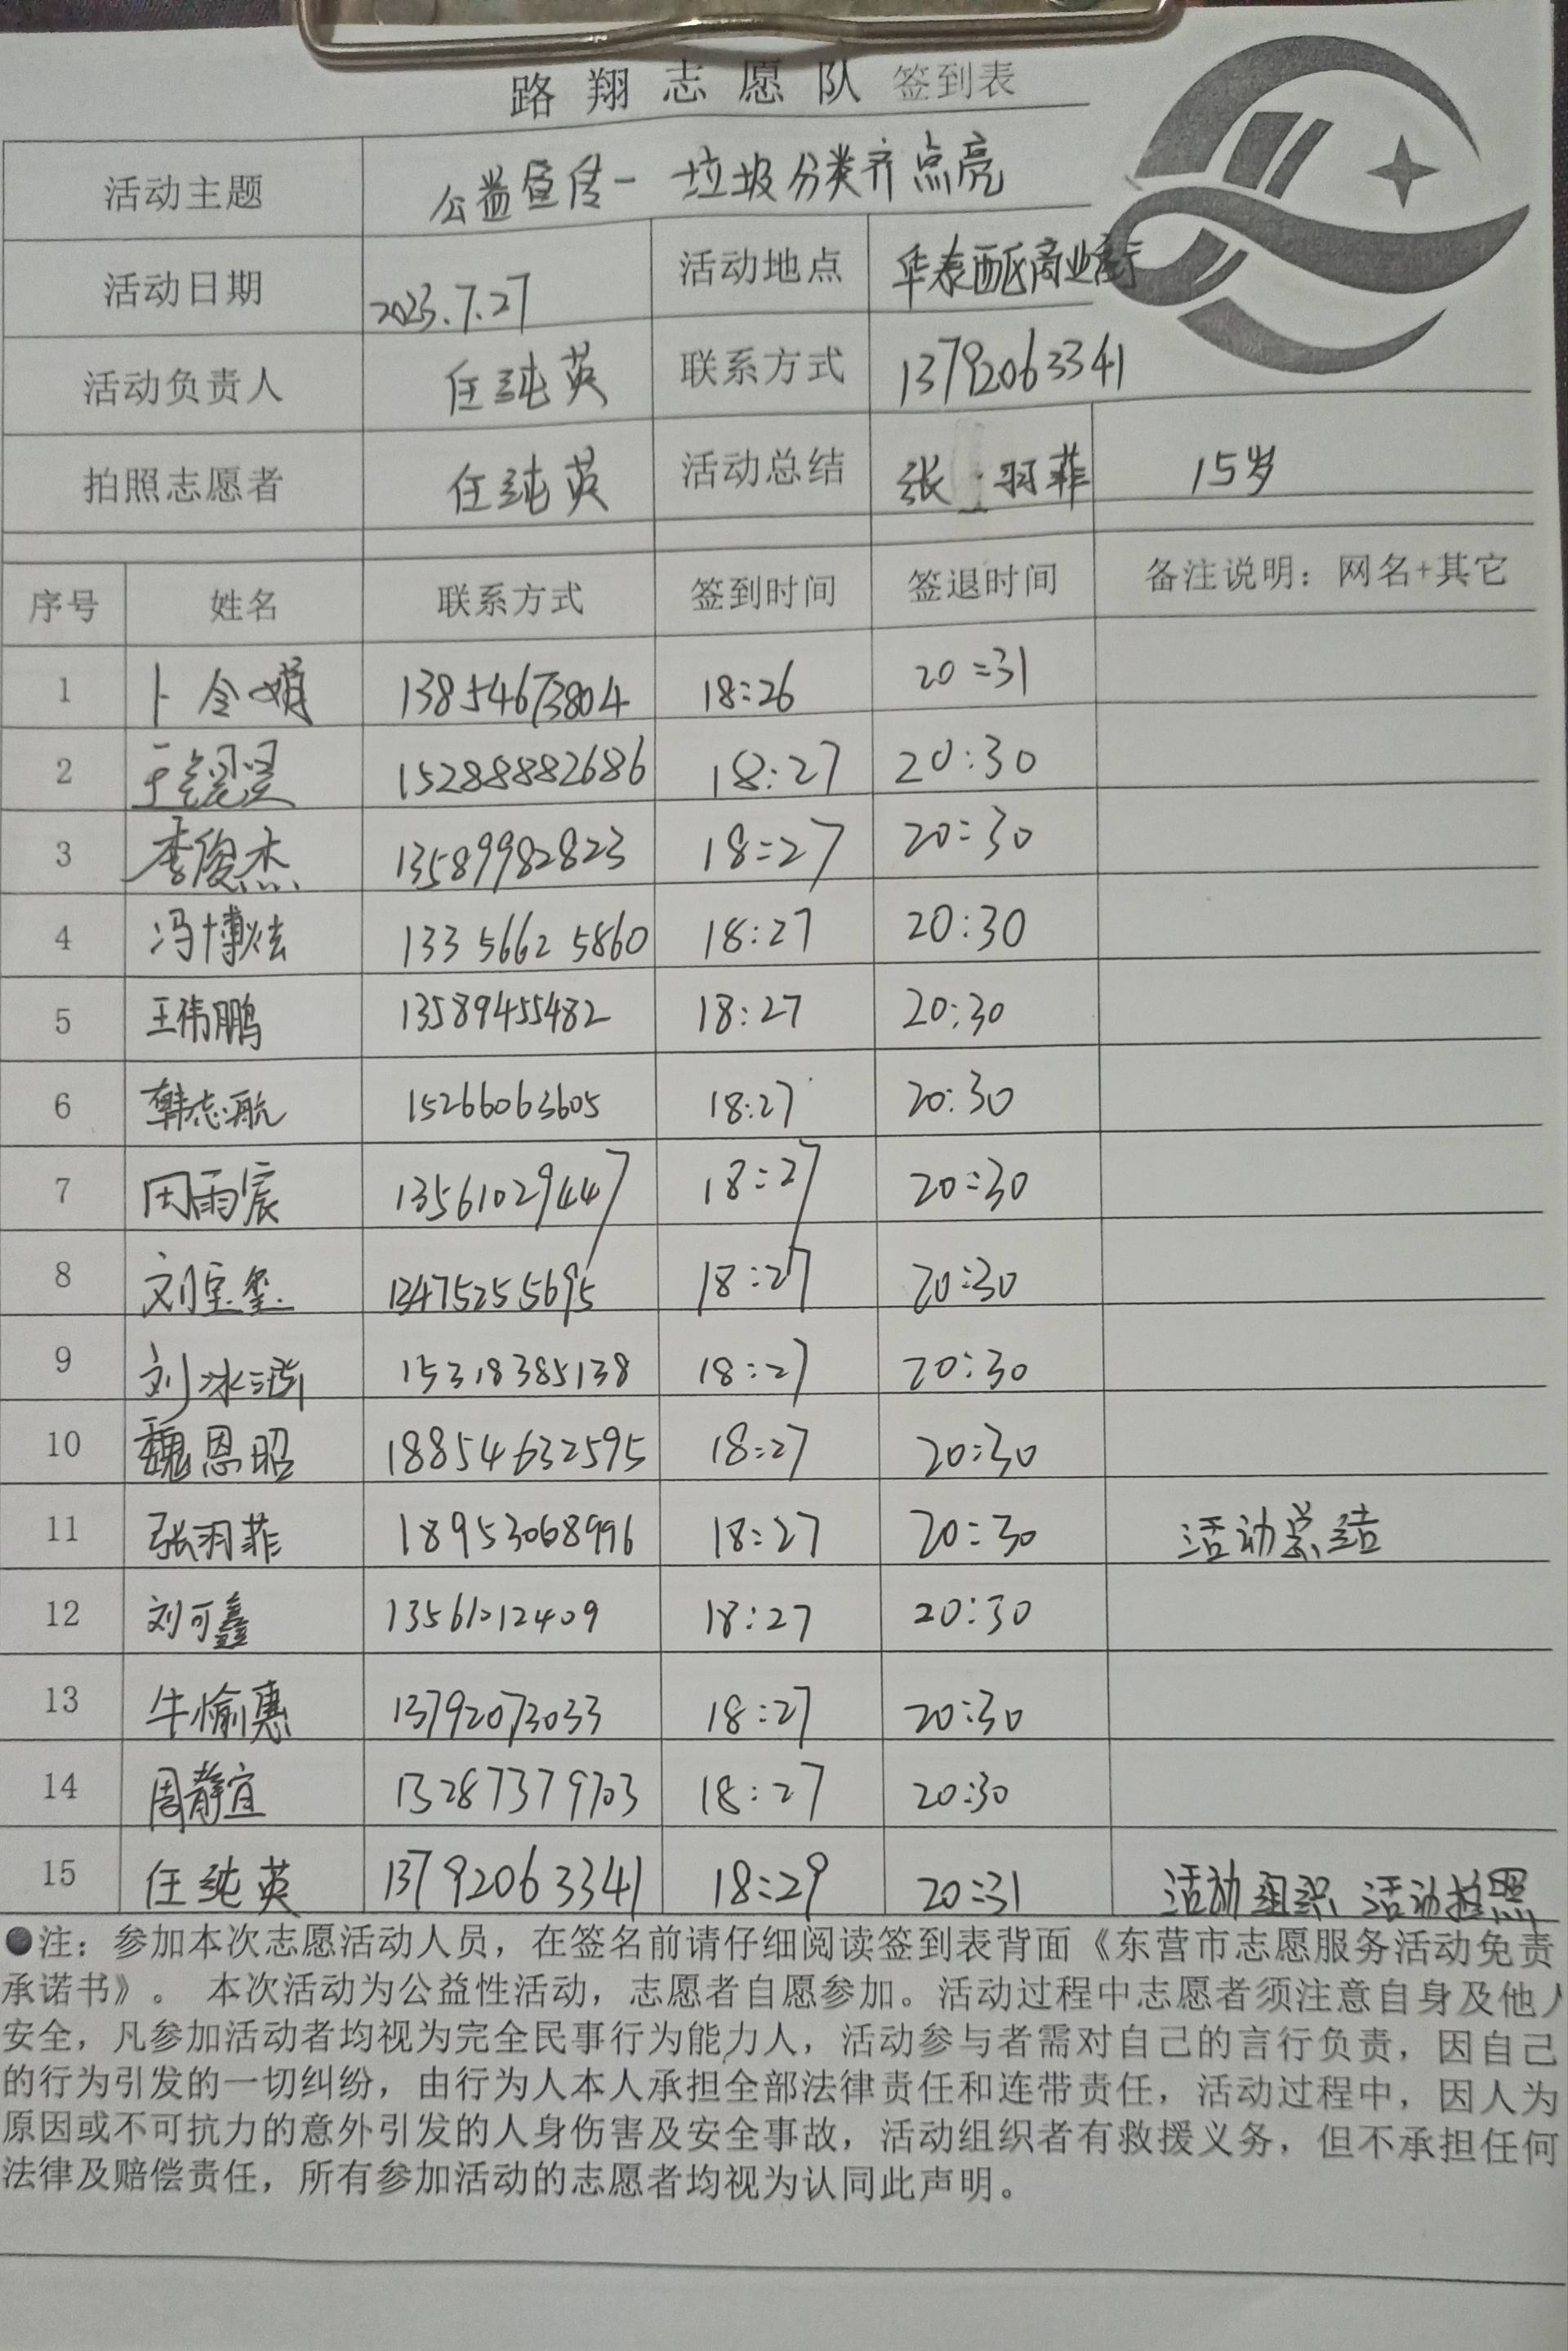 路翔志愿队 签到表
活动主题 公益宣传- 垃圾分类齐点亮
活动日期 2023.7.27 活动地点 华泰西区商业街
活动负责人 任纯英 联系方式 13792063341
拍照志愿者 任纯英 活动总结 张羽菲 15岁
序号 姓名 联系方式 签到时间 签退时间 备注说明：网名+其它
1 卜令娟 13854673804 18:26 20:31
2 15288882686 18:27 20:30
3 李俊杰 13589982823 18:27 20:30
4 冯博炫 133 5662 5860 18:27 20:30
5 王伟鹏 13589455482 18:27 20:30
6 韩志航 15266063605 18:27 20:30
7 田雨宸 13561029447 18:27 20:30
8 刘宝玺 13475255695 18:27 20:30
9 15318385138 18:27 20:30
10 魏恩昭 18854632595 18:27 20:30
11 张羽菲 18953068996 18:27 20:30 活动总结
12 刘可鑫 13561012409 18:27 20:30
13 牛愉惠 13792073033 18:27 20:30
14 周静宜 13287379703 18:27 20:30
15 任纯英 13792063341 18:29 20:31 活动组织 活动拍照
●注：参加本次志愿活动人员，在签名前请仔细阅读签到表背面《东营市志愿服务活动免责
承诺书》。 本次活动为公益性活动，志愿者自愿参加。活动过程中志愿者须注意自身及他人
安全，凡参加活动者均视为完全民事行为能力人，活动参与者需对自己的言行负责，因自己
的行为引发的一切纠纷，由行为人本人承担全部法律责任和连带责任，活动过程中，因人为
原因或不可抗力的意外引发的人身伤害及安全事故，活动组织者有救援义务，但不承担任何
法律及赔偿责任，所有参加活动的志愿者均视为认同此声明。